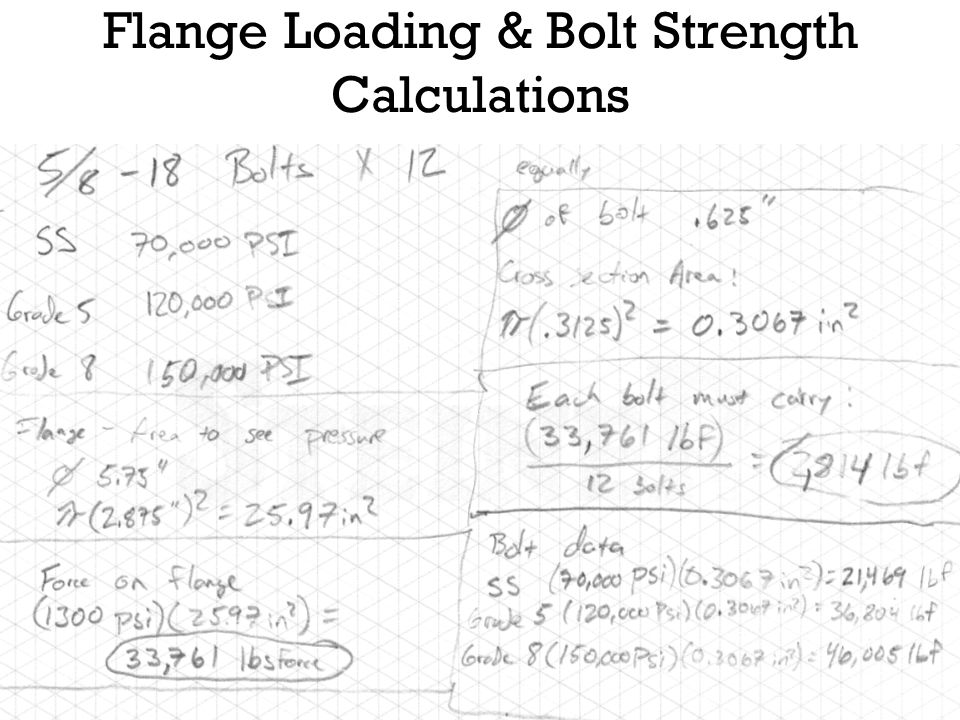 Flange Loading & Bolt Strength
Calculations
5/8 - 18 Bolts x 12
SS 70,000 PSI
Grade 5 120,000 PSI
Grade 8 150,000 PSI
Flange - Area to see pressure
Ø 5.75"
π(2.875")² = 25.97in²
Force on flange
(1300 psi)(25.97in²) =
33,761 lbsforce
equally
Ø of bolt .625"
Cross section Area:
π(.3125)² = 0.3067 in²
Each bolt must carry:
(33,761 lbf)
12 bolts
= 2,814 lbf
Bolt data
SS (70,000 psi)(0.3067in²)=21,469 lbf
Grade 5 (120,000 Psi)(0.3067in²)= 36,804 lbf
Grade 8 (150,000 Psi)(0.3067in²)= 46,005 lbf